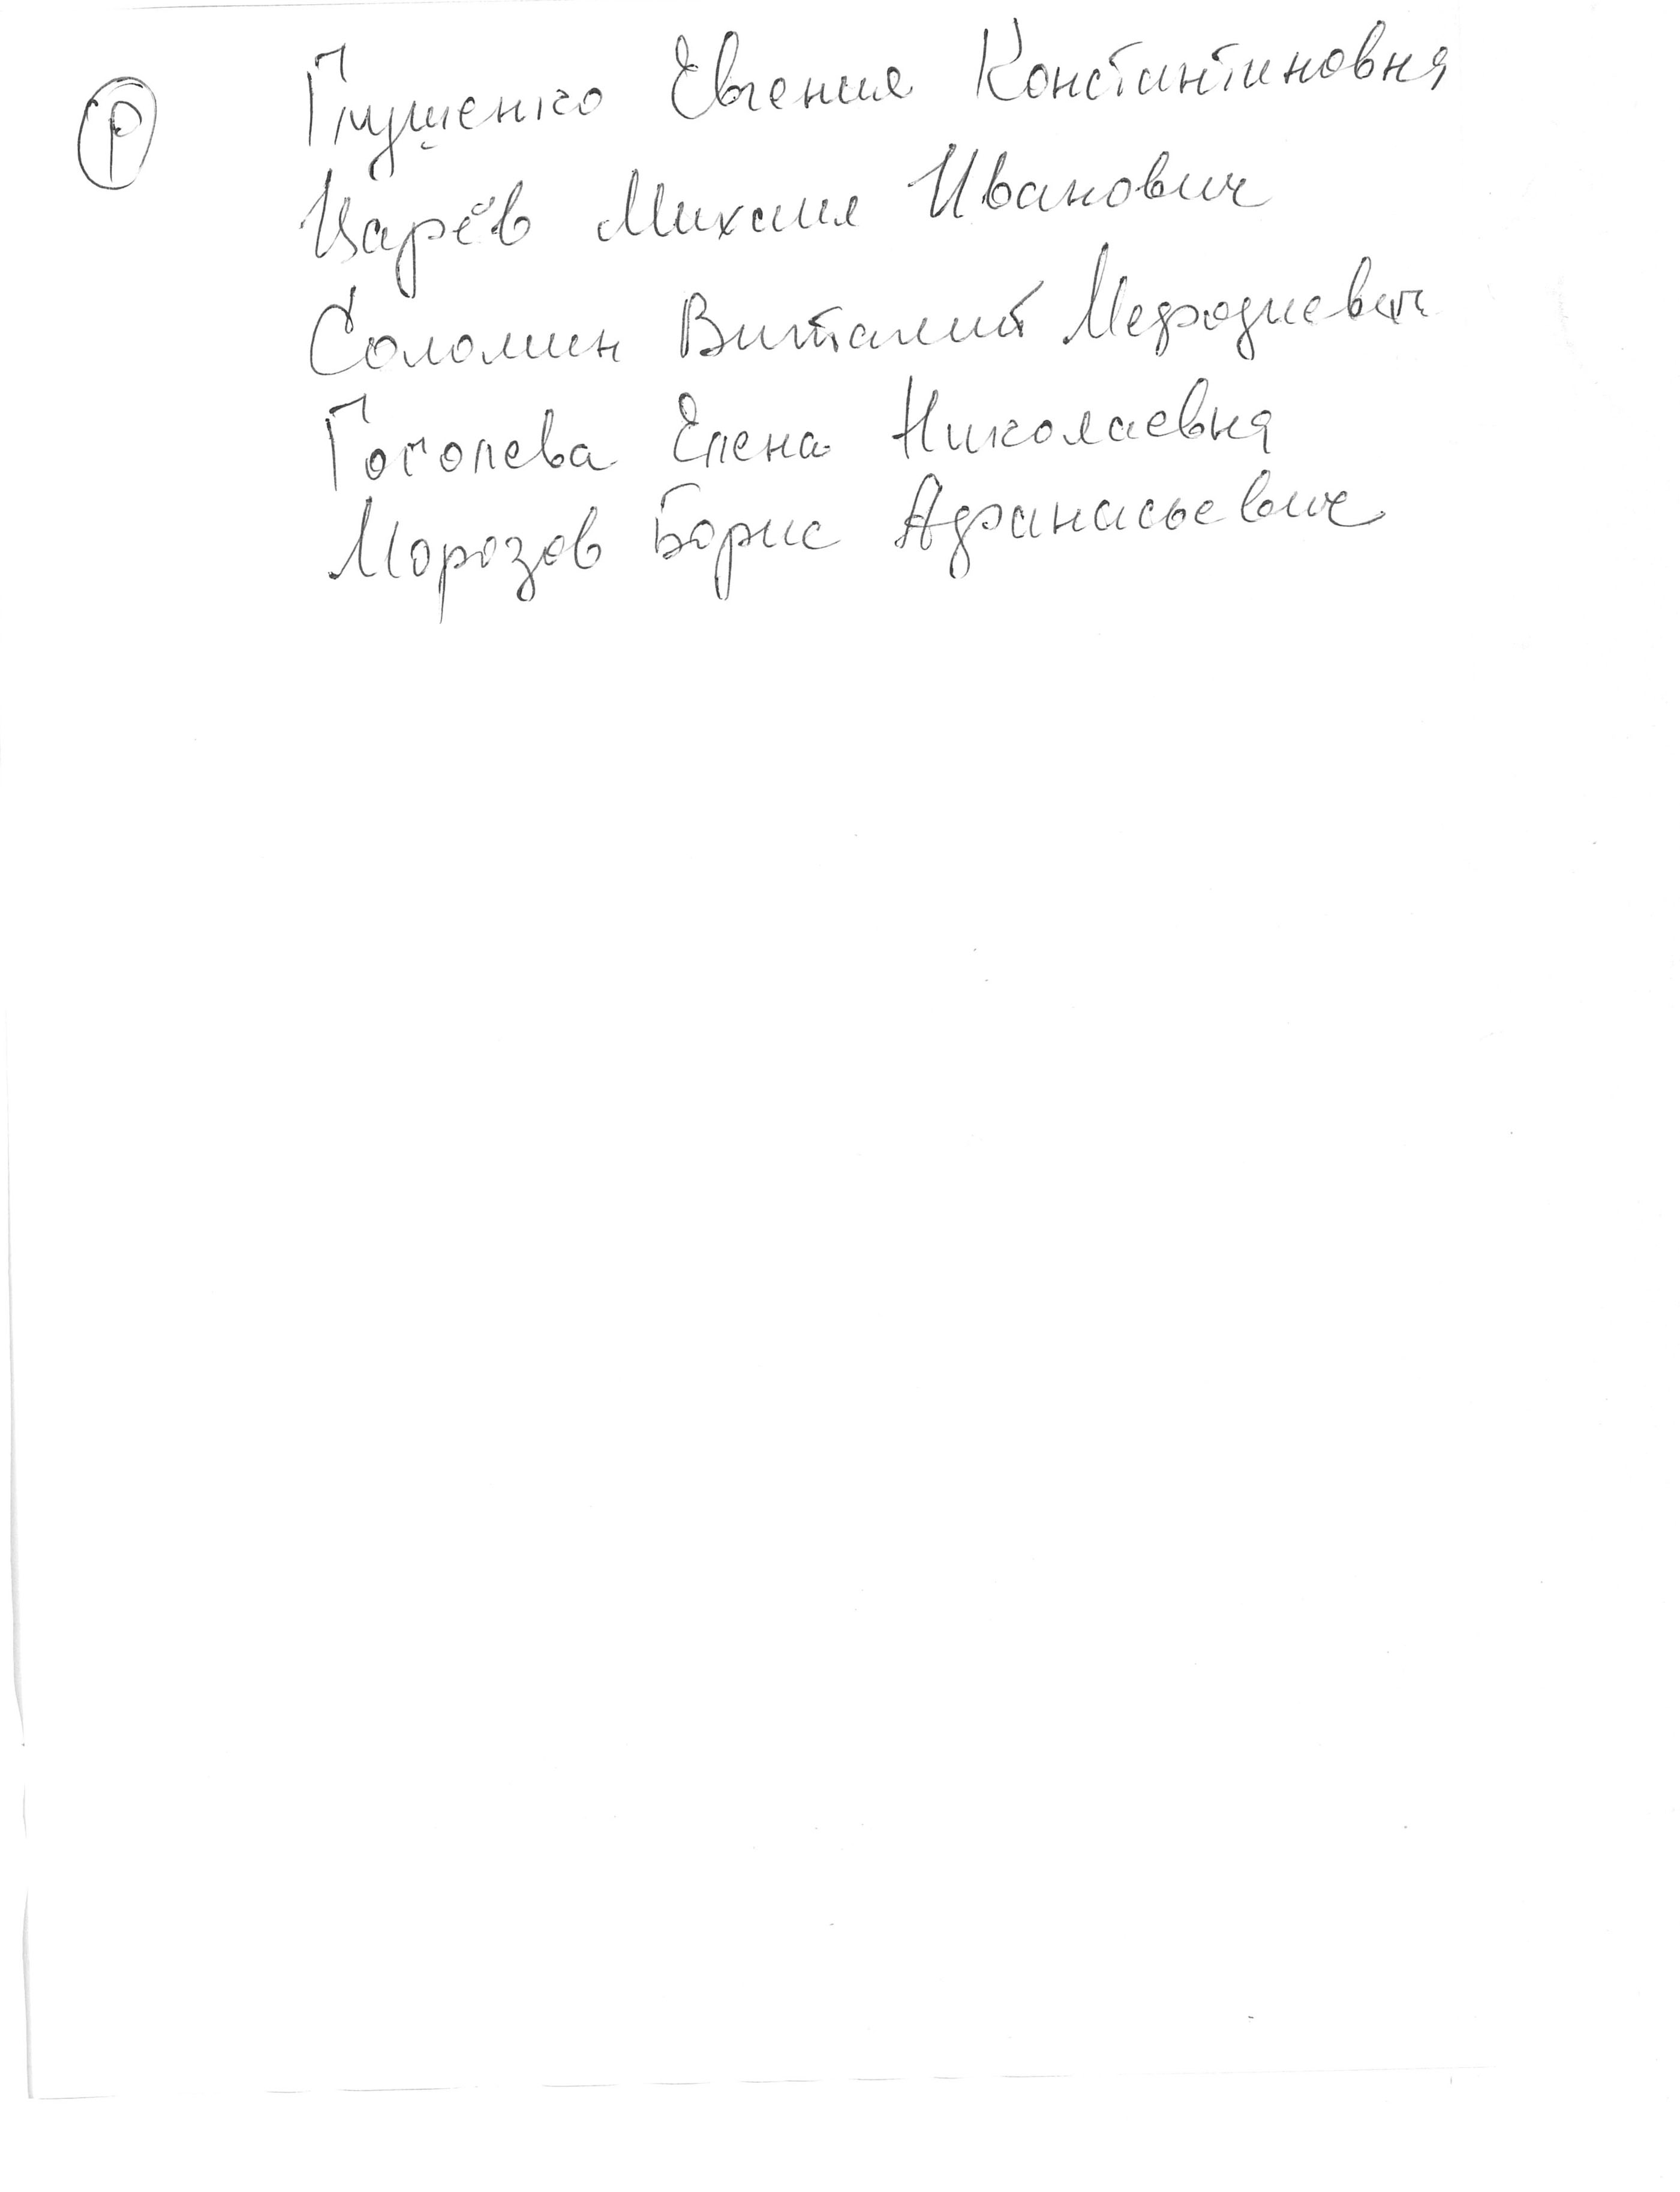 Р Глушенко Евгения Константиновна
Царёв Михаил Иванович
Соломин Виталий Мефодиевич
Гоголева Елена Николаевна
Морозов Борис Афанасьевич